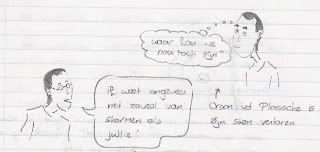 waar kan -ie
nou toch zijn
ik weet ongeveer
net zoveel van
stormen als
jullie!
Oroon vd Plassche is
zijn stem verloren